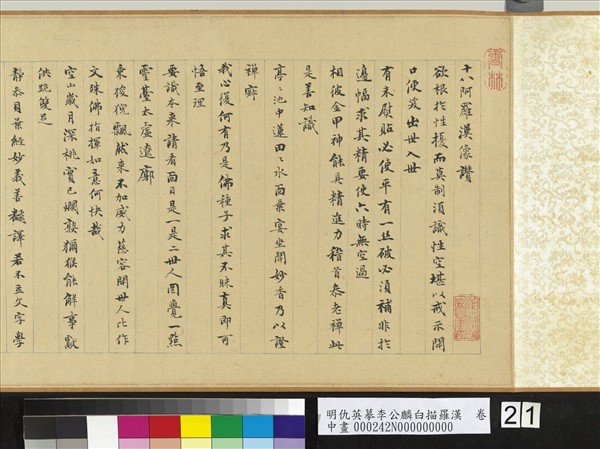 十八阿羅漢像讚
欲根於性擾而莫制須識性空堪以戒示開
口便笑出世入世
有未熨貼必使平有一絲破必須補非於
邊幅求其精要使六時無空過
相彼金甲神能具精進力稽首泰老禪此
是善知識
亭亭池中蓮田田水面葉宴坐聞妙香乃以證
禪寂
我心後何有乃是佛種子求其不昧真即可
悟至理
要識本來請看面目是一是二世人罔覺一點
靈臺太虛遼廓
東狻猊飄然來不加威力慈容開世人比作
文殊佛指揮如意何快哉
空山歲月深桃實已爛熟獼猴能解事獻
供跪雙足
靜參貝葉經妙義善翻譯若不立文字學
雲林
明仇英摹李公麟白描羅漢 卷
中畫000242N000000000
21